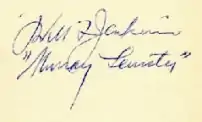 Will F Jenkins
"Murray Leinster"